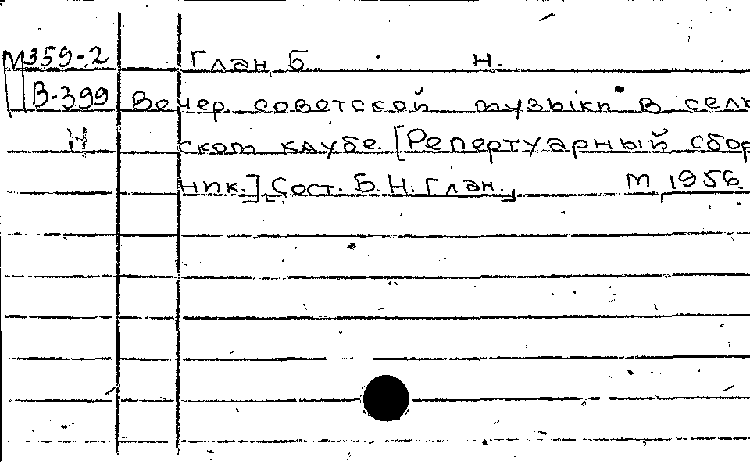 М359-2 Глан Б Н.
В-399 Вечер советской музыки в сель
Н ском клубе. [Репертуарный сбор
ник.] Сост. Б.Н. Глан. М, 1956